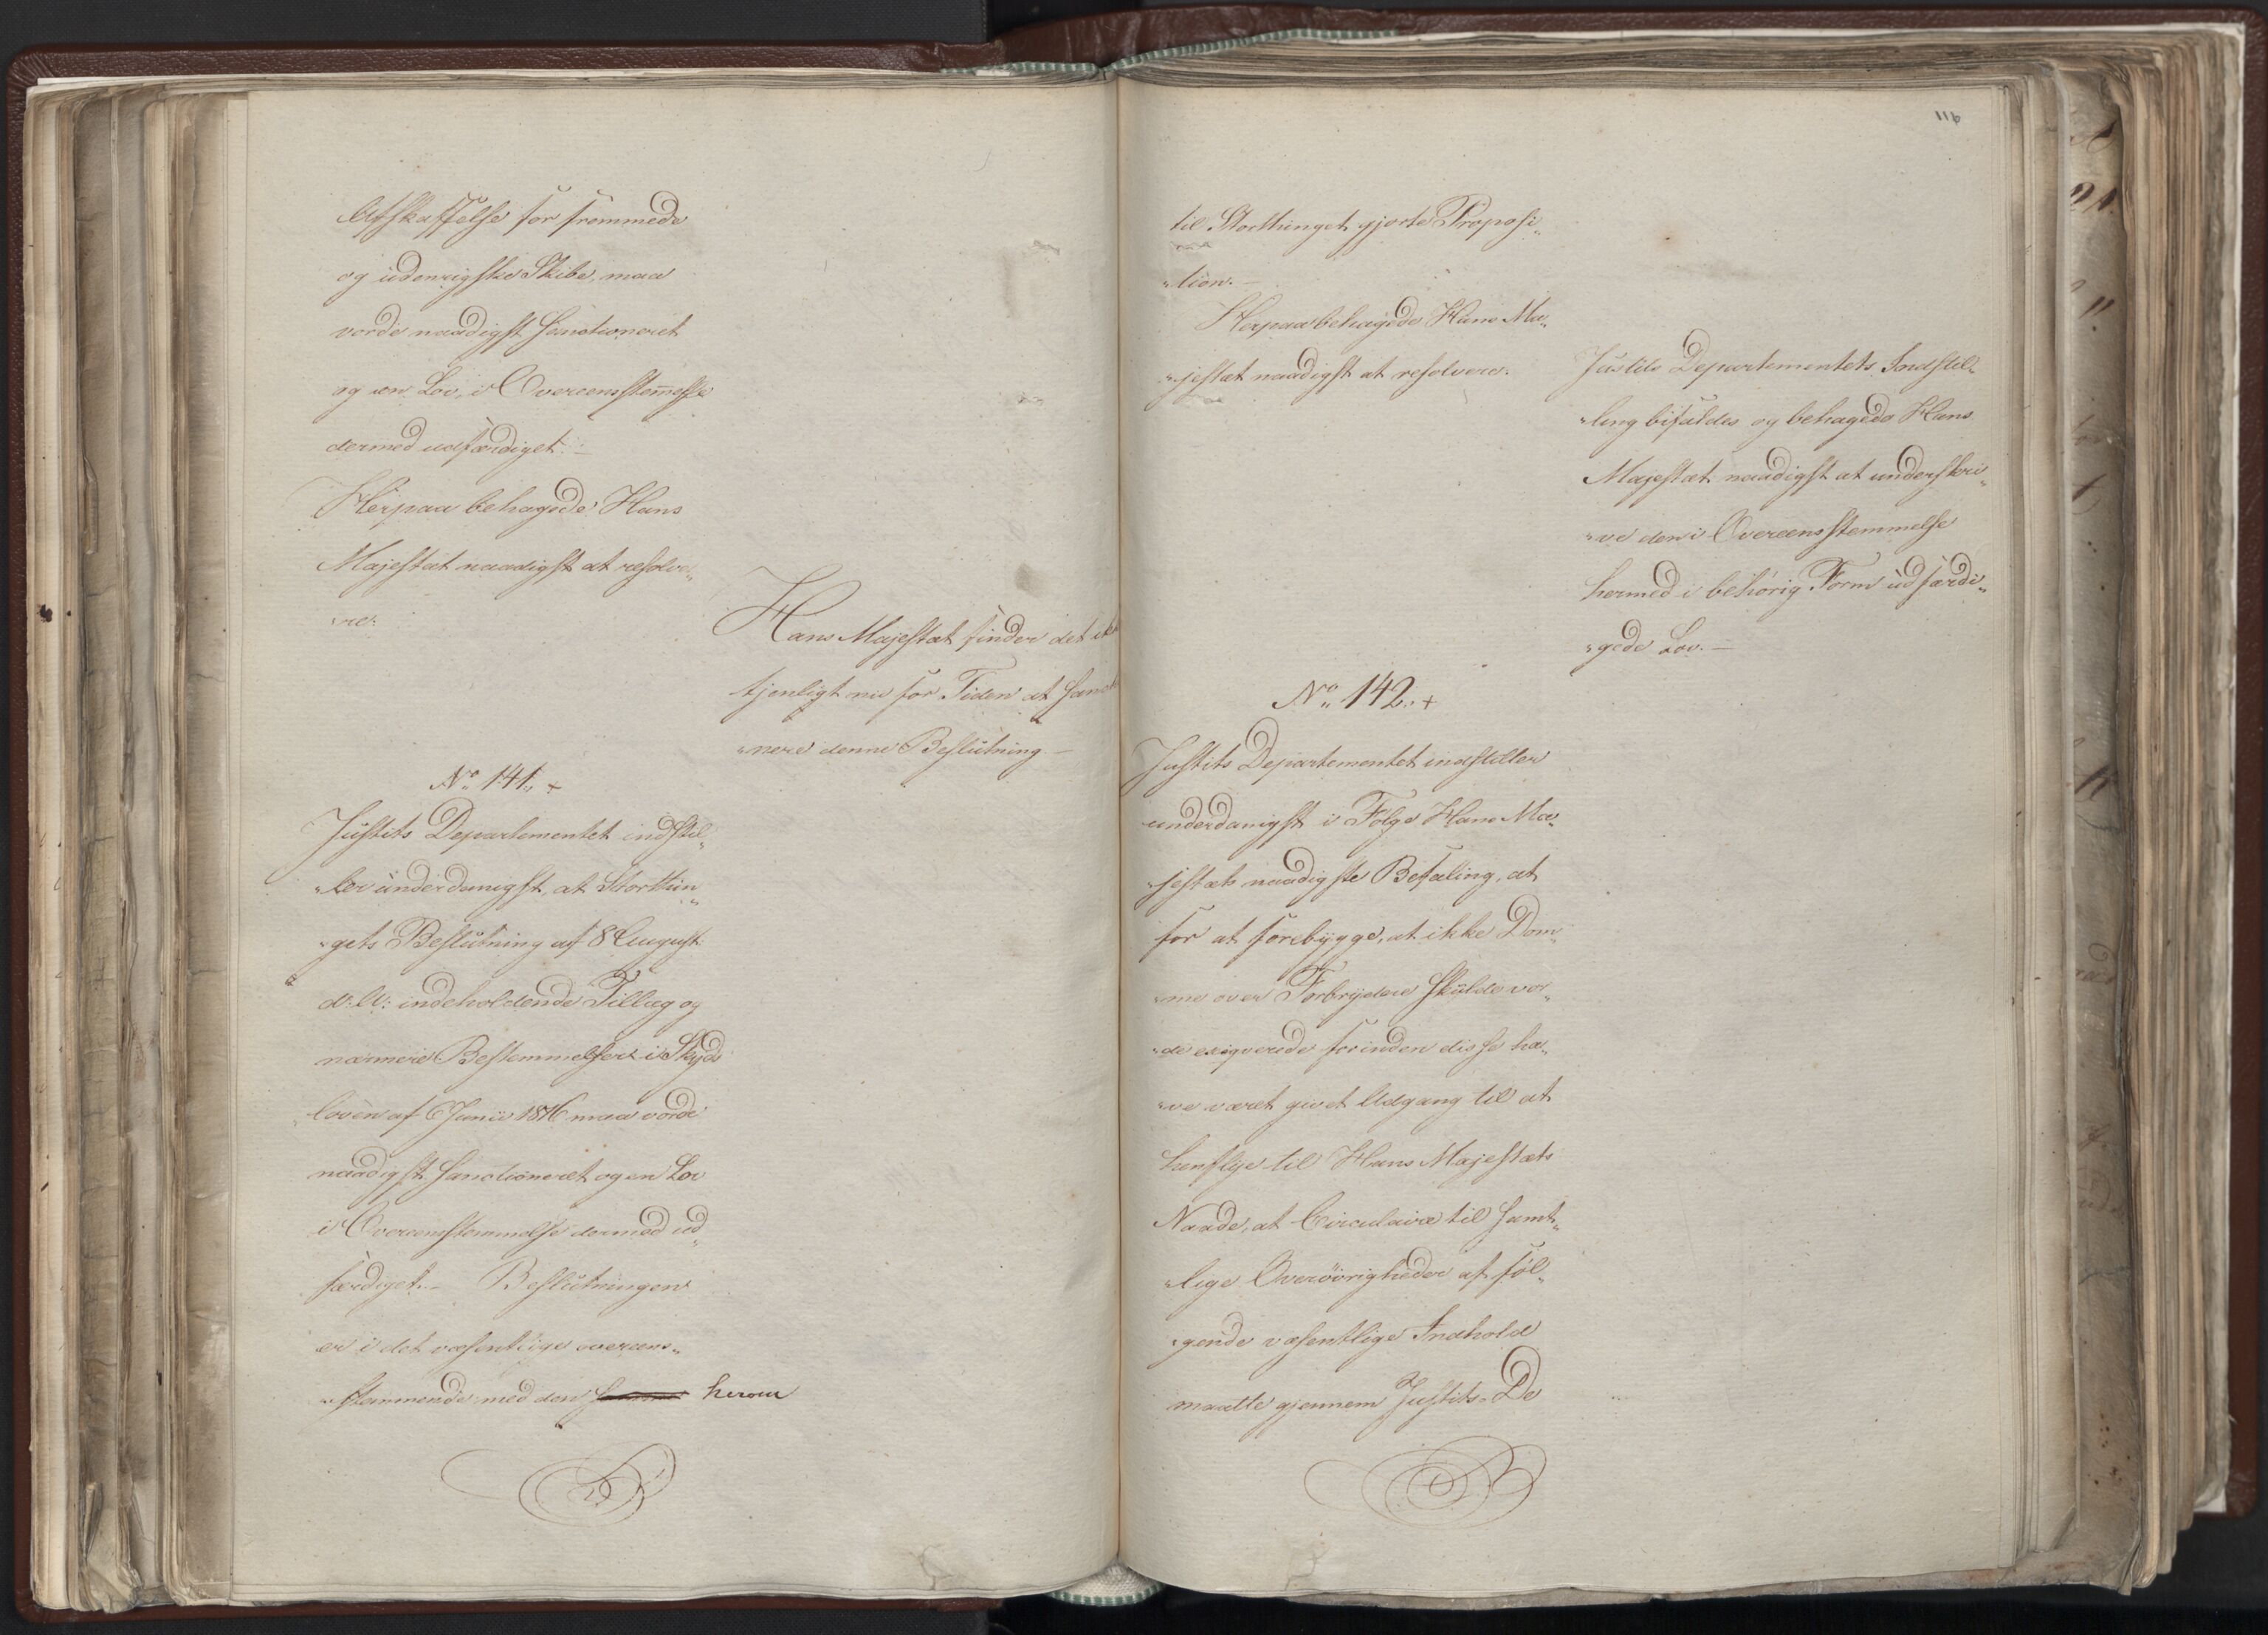 Afskaffelse for fremmede
og udenrigske Skibe, maa
vorde naadigst sanctioneret
og en Lov, i Overeensstem̄else
dermed udfærdiget. –
Herpaa behagede Hans
Majestæt naadigst at resolve„
„re:
Hans Majestæt finder det ik
tjenligt nu for Tiden at sanct
„nere denne Beslutning –
No 141. +
Justits Departementet indstil„
„ler underdanigst, at Storthin„
„gets Beslutning af 8 August
d: A: indeholdende Tillæg og
nærmere Bestemmelser i Skyds
loven af 6 Junii 1816 maa vorde
naadigst sanctioneret og en Lov
i Overeensstemmelse dermed ud„
færdiget. – Beslutningen
er i det væsentlige overeens„
„stemmende med den herom
116
til Storthinget gjorte Proposi„
„tion. –
Herpaa behagede Hans Ma„
„jestæt naadigst at resolvere:
Justits Departementets Indstil„
„ling bifaldes og behagede Hans
Majestæt naadigst at underskri„
„ve den i Overeensstemmelse
hermed i behørig Form udfærdi„
„gede Lov. –
No 142. +
Justits Departementet indstiller
underdanigst i Følge Hans Ma„
„jestæts naadigste Befaling, at
for at forebygge, at ikke Dom„
„me over Forbrydere skulde vor„
„de exiqverede forinden disse ha„
„ve været givet Adgang til at
henflye til Hans Majestæts
Naade, at Circulaire til samt„
„lige Overøvrigheder af føl„
„gende væsentlige Indhold
maatte gjennem Justits-De